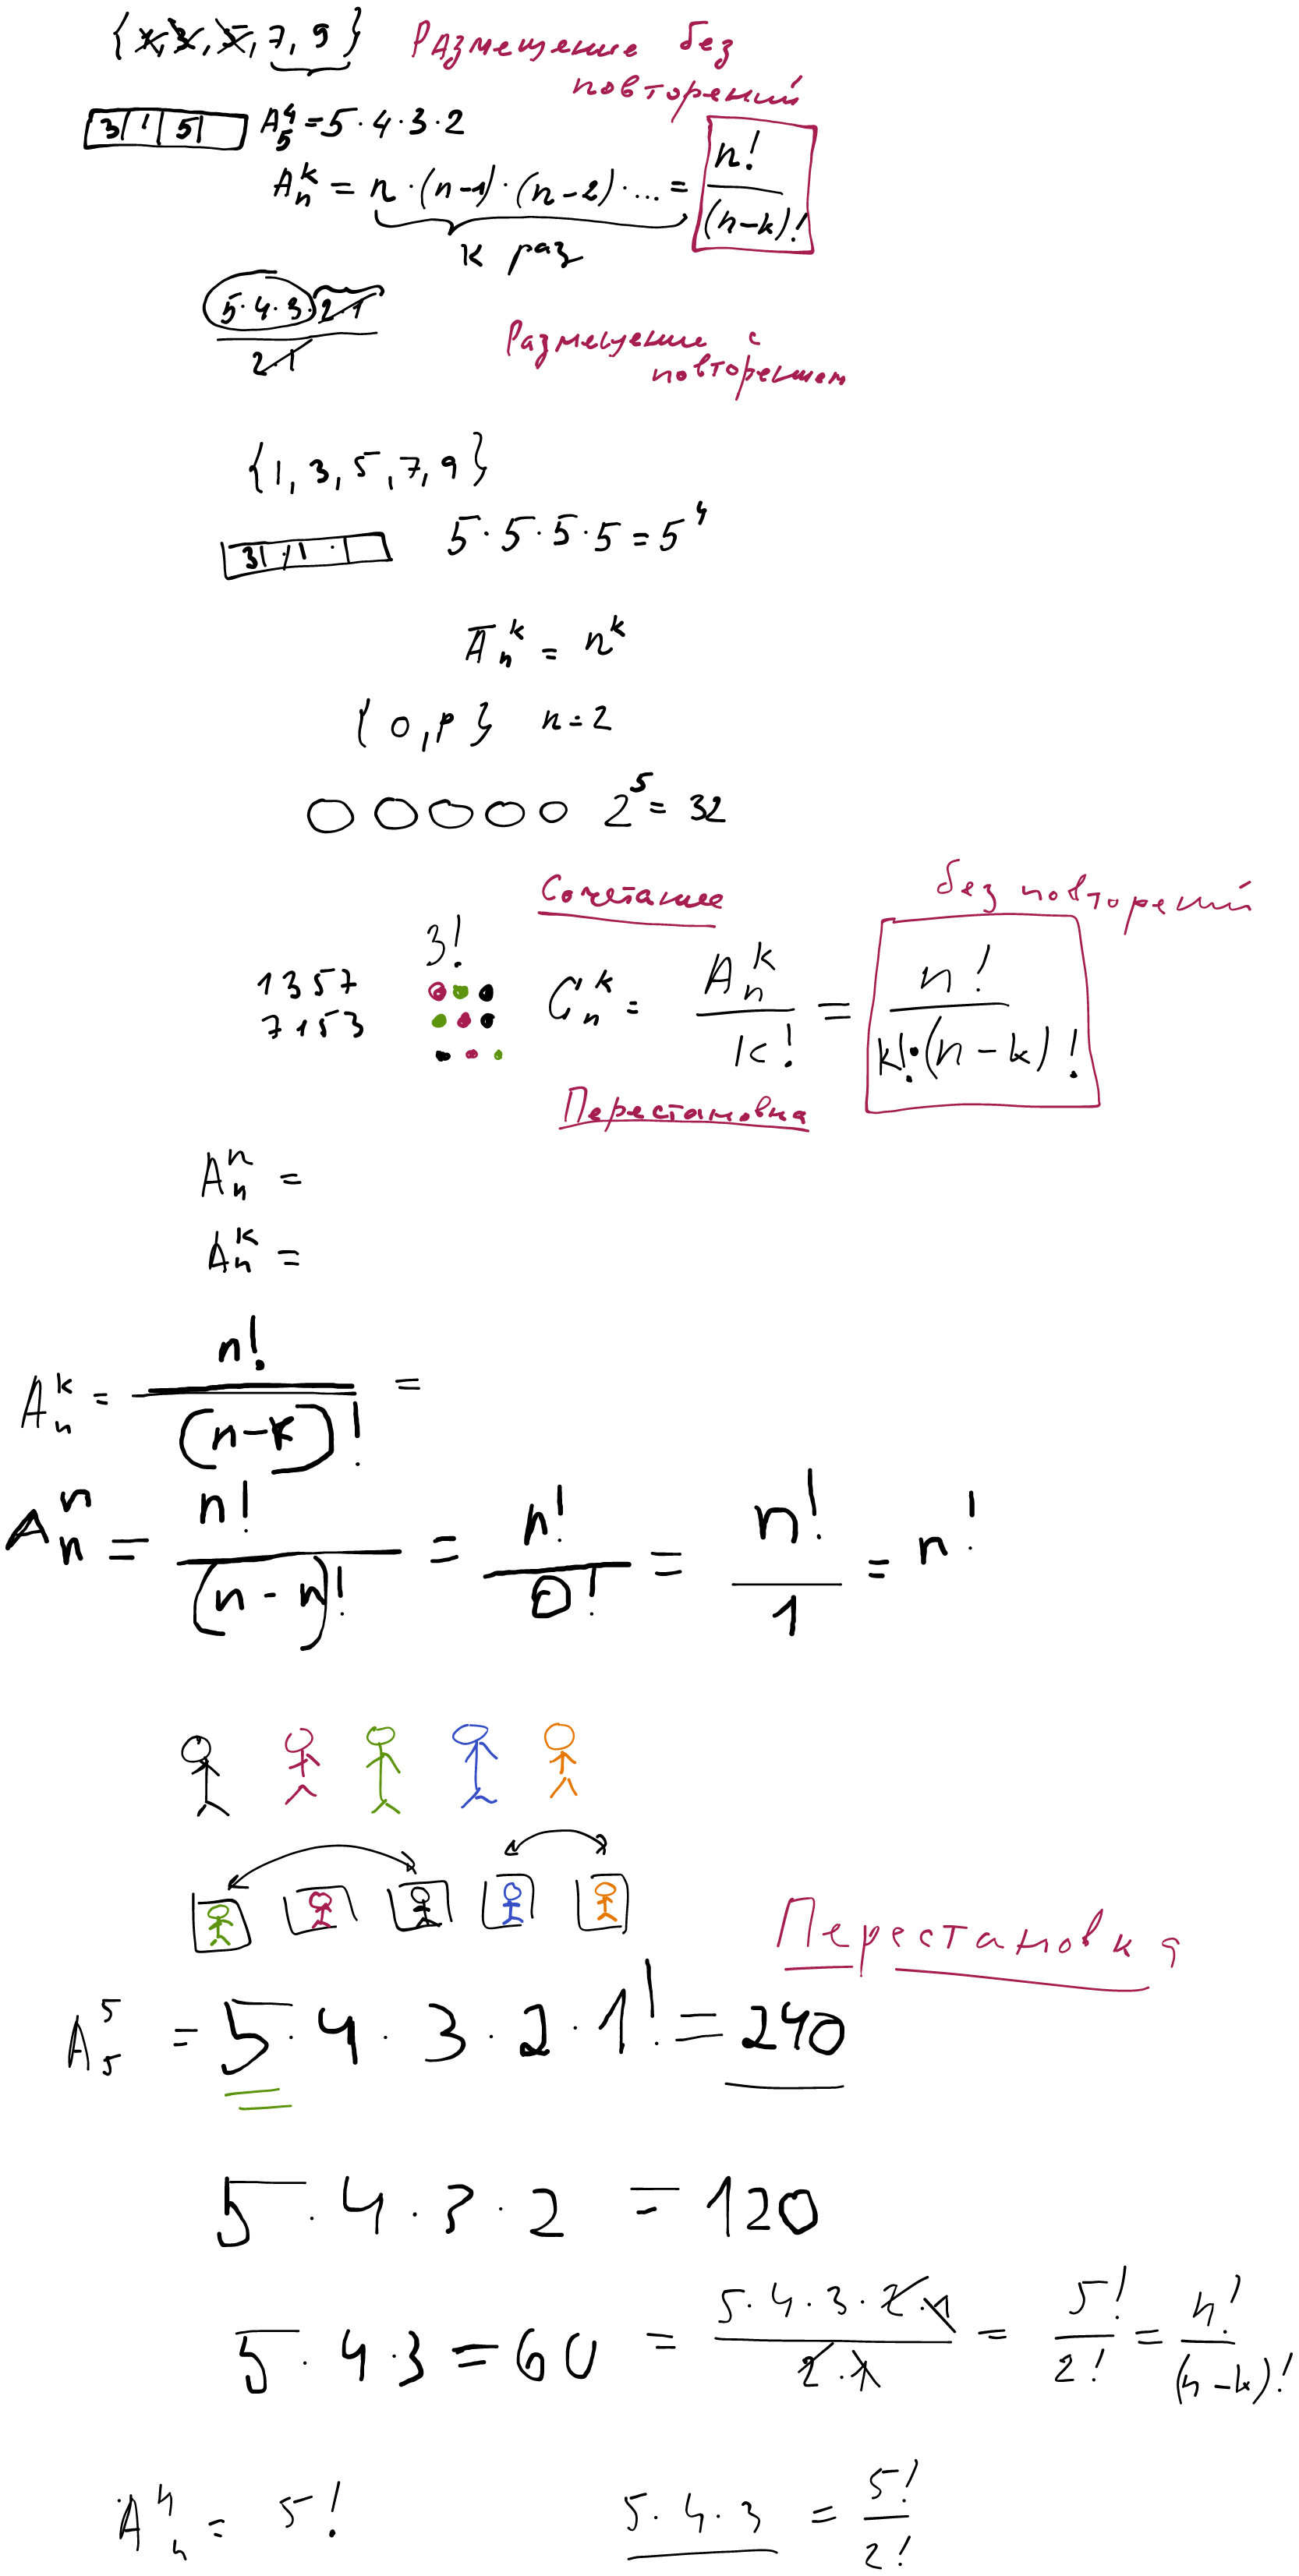 {1, 3, 5, 7, 9} Размещение без
повторений
3 1 5 A₅⁴ = 5 · 4 · 3 · 2
Aₙᵏ = n · (n-1) · (n-2) · ... = n! / (n-k)!
k раз
5 · 4 · 3 · 2 · 1 / 2 · 1
Размещение с
повторением
{1, 3, 5, 7, 9}
3 1 5 · 5 · 5 · 5 = 5⁴
A̅ₙᵏ = nᵏ
{0, p} n = 2
2⁵ = 32
Сочетание без повторений
3!
1357
7153
Cₙᵏ = Aₙᵏ / k! = n! / k! · (n-k)!
Перестановка
Aₙⁿ =
Aₙᵏ =
Aₙᵏ = n! / (n-k)! =
Aₙⁿ = n! / (n-n)! = n! / 0! = n! / 1 = n!
Перестановка
A₅⁵ = 5 · 4 · 3 · 2 · 1! = 240
5 · 4 · 3 · 2 = 120
5 · 4 · 3 = 60 = 5 · 4 · 3 · 2 · 1 / 2 · 1 = 5! / 2! = n! / (n-k)!
Aₙⁿ = 5! 5 · 4 · 3 = 5! / 2!